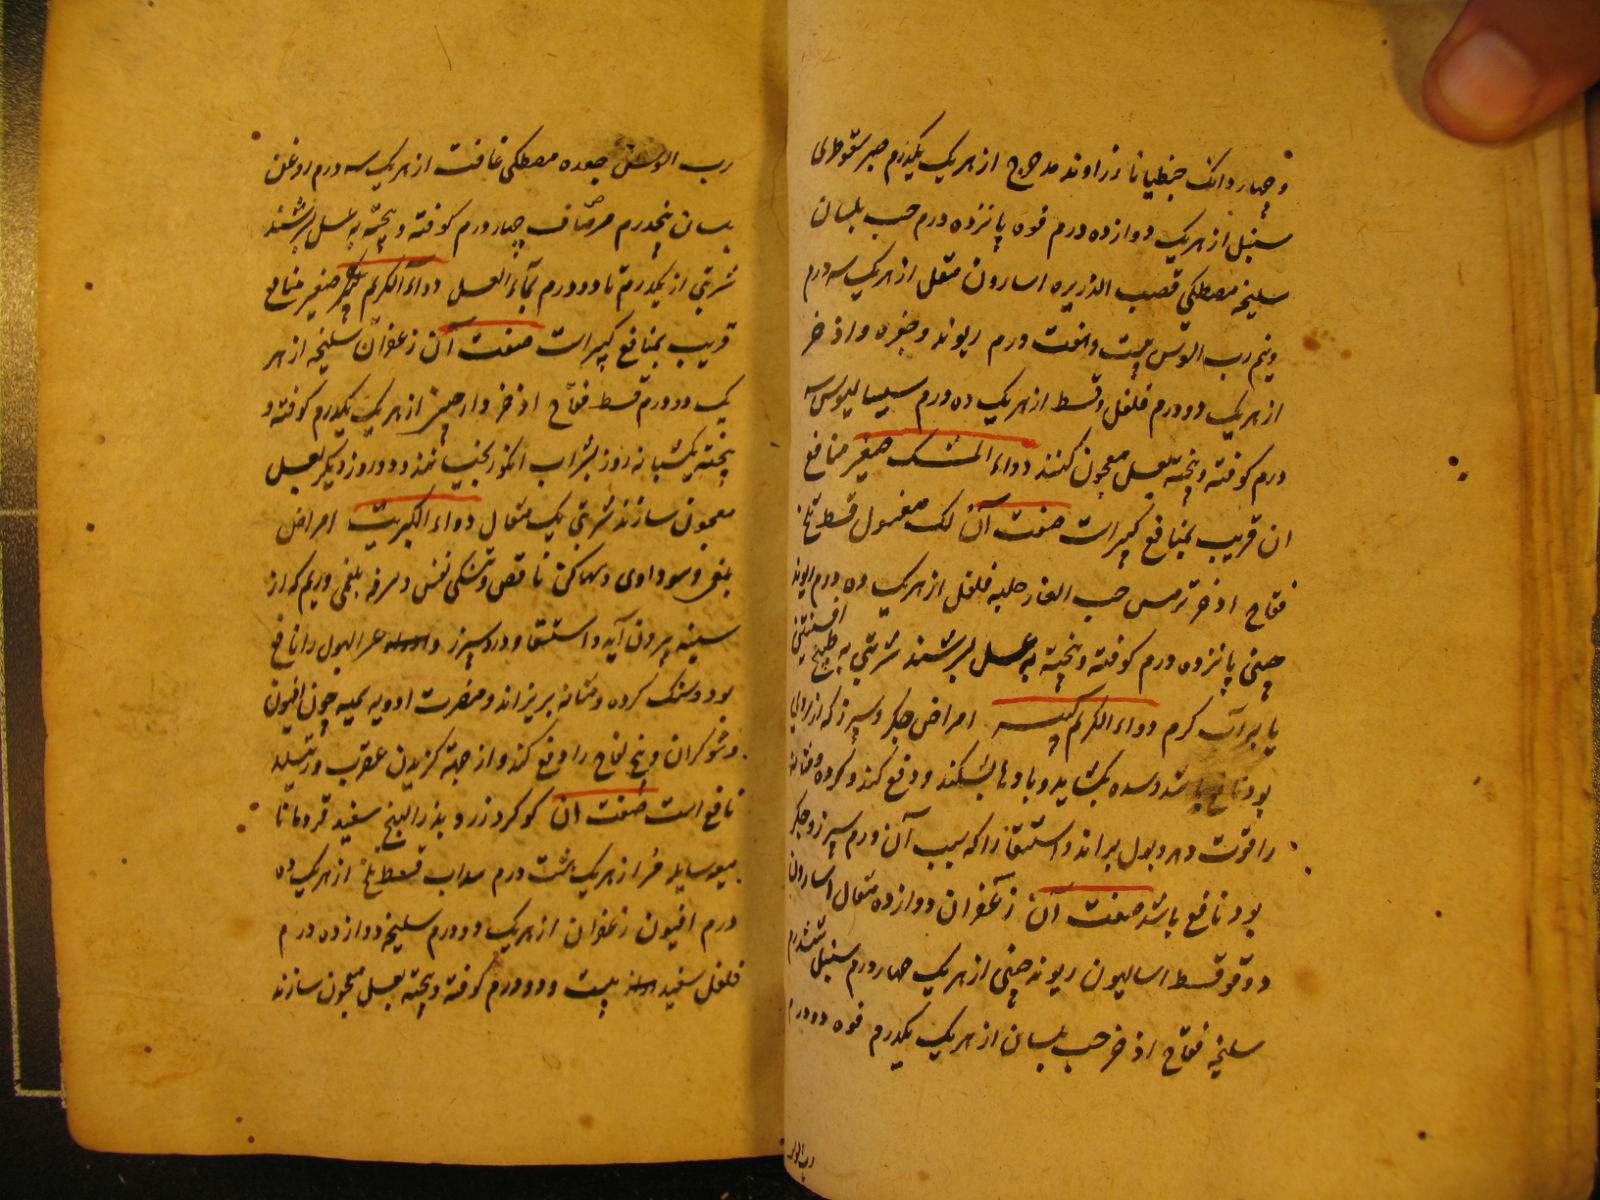 و چهار دانک جنطیانا زراوند مدحرج از هر یک یکدرم صبر سقوطری
سنبل از هر یک دوازده درم فوه پانزده درم حب بلسان
سلیخه مصطکی قصب الذریره اسارون مقل از هر یک سه درم
ونیم رب السوس بیست وهفت درم ریوند وجعده و اذخر
از هر یک دو درم فلفل وقسط از هر یک ده درم سیسالیوس سه
درم کوفته وپخته بعسل معجون کنند دواء المسک صغیر منافع
ان قریب بمنافع کبیر است صفت آن لک مغسول قسط تلخ
فقاح اذخر ترمس حب الغار حلبه فلفل از هر یک ده درم ریوند
چینی پانزده درم کوفته وپخته به عسل بسرشند شربتی به طبیخ افسنتین
یا بر آب کرم دواء الکرکم کبیر امراض جکر وسپرز که از
بود نافع باشد وسده بکشاید وبادها بشکند ودفع کند وکرده ومثانه
را قوت دهد وبول براند واستسقا را که بسبب آن ورم سپرز وجکر
بود نافع باشد صفت آن زعفران دوازده مثقال اسارون
دوقو قسط اسالیون ریوند چینی از هر یک چهار درم سنبل ششدرم
سلیخه فقاح اذخر حب بلسان از هر یک یکدرم فوه دو درم
رب السوس
رب السوس جعده مصطکی غافت از هر یک سه درم روغن
بلسان پنجدرم مرصاف چهار درم کوفته وپخته به عسل بسرشند
شربتی از یکدرم تا دو درم بماء العسل دواء الکرکم صغیر منافع
قریب بمنافع کبیر است صفت آن زعفران سلیخه از هر
یک دو درم قسط فقاح اذخر دارچینی از هر یک یکدرم کوفته و
پخته یکشبانه روز بشراب انکور بخیسانند ودو روز دیکر بعسل
معجون سازند شربتی یک مثقال دواء الکبریت امراض
بلغمی وسوداوی وتبهای کهن ناقص وتنکی نفس وسرفه بلغمی وریم که از
سینه بیرون آید واستسقا ودرد سپرز وعسر البول را نافع
بود وسنک کرده ومثانه بریزاند ومضرت ادویه سمیه چون افیون
وشوکران وبیخ لفاح را دفع کند واز جهة کزیدن عقرب ورتیلا
نافع است صفت ان کوکرد زرد بذر البنج سفید قردمانا
میعه سایله مر از هر یک هشت درم سداب قسط تلخ از هر یک ده
درم افیون زعفران از هر یک دو درم سلیخه دوازده درم
فلفل سفید بیست ودو درم کوفته وپخته بعسل معجون سازند